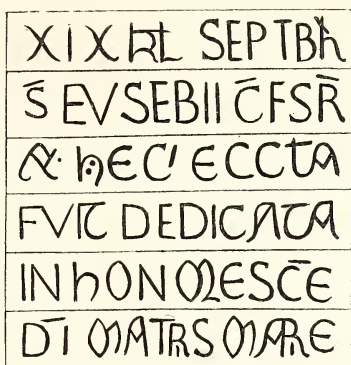 XIX KL SEPTBR
S̄ EVSEBII C̄FSR̄
&· hEC' ECCLA
FVIT DEDICATA
IN hONORESC̄E
D̄I MATRIS MARIE